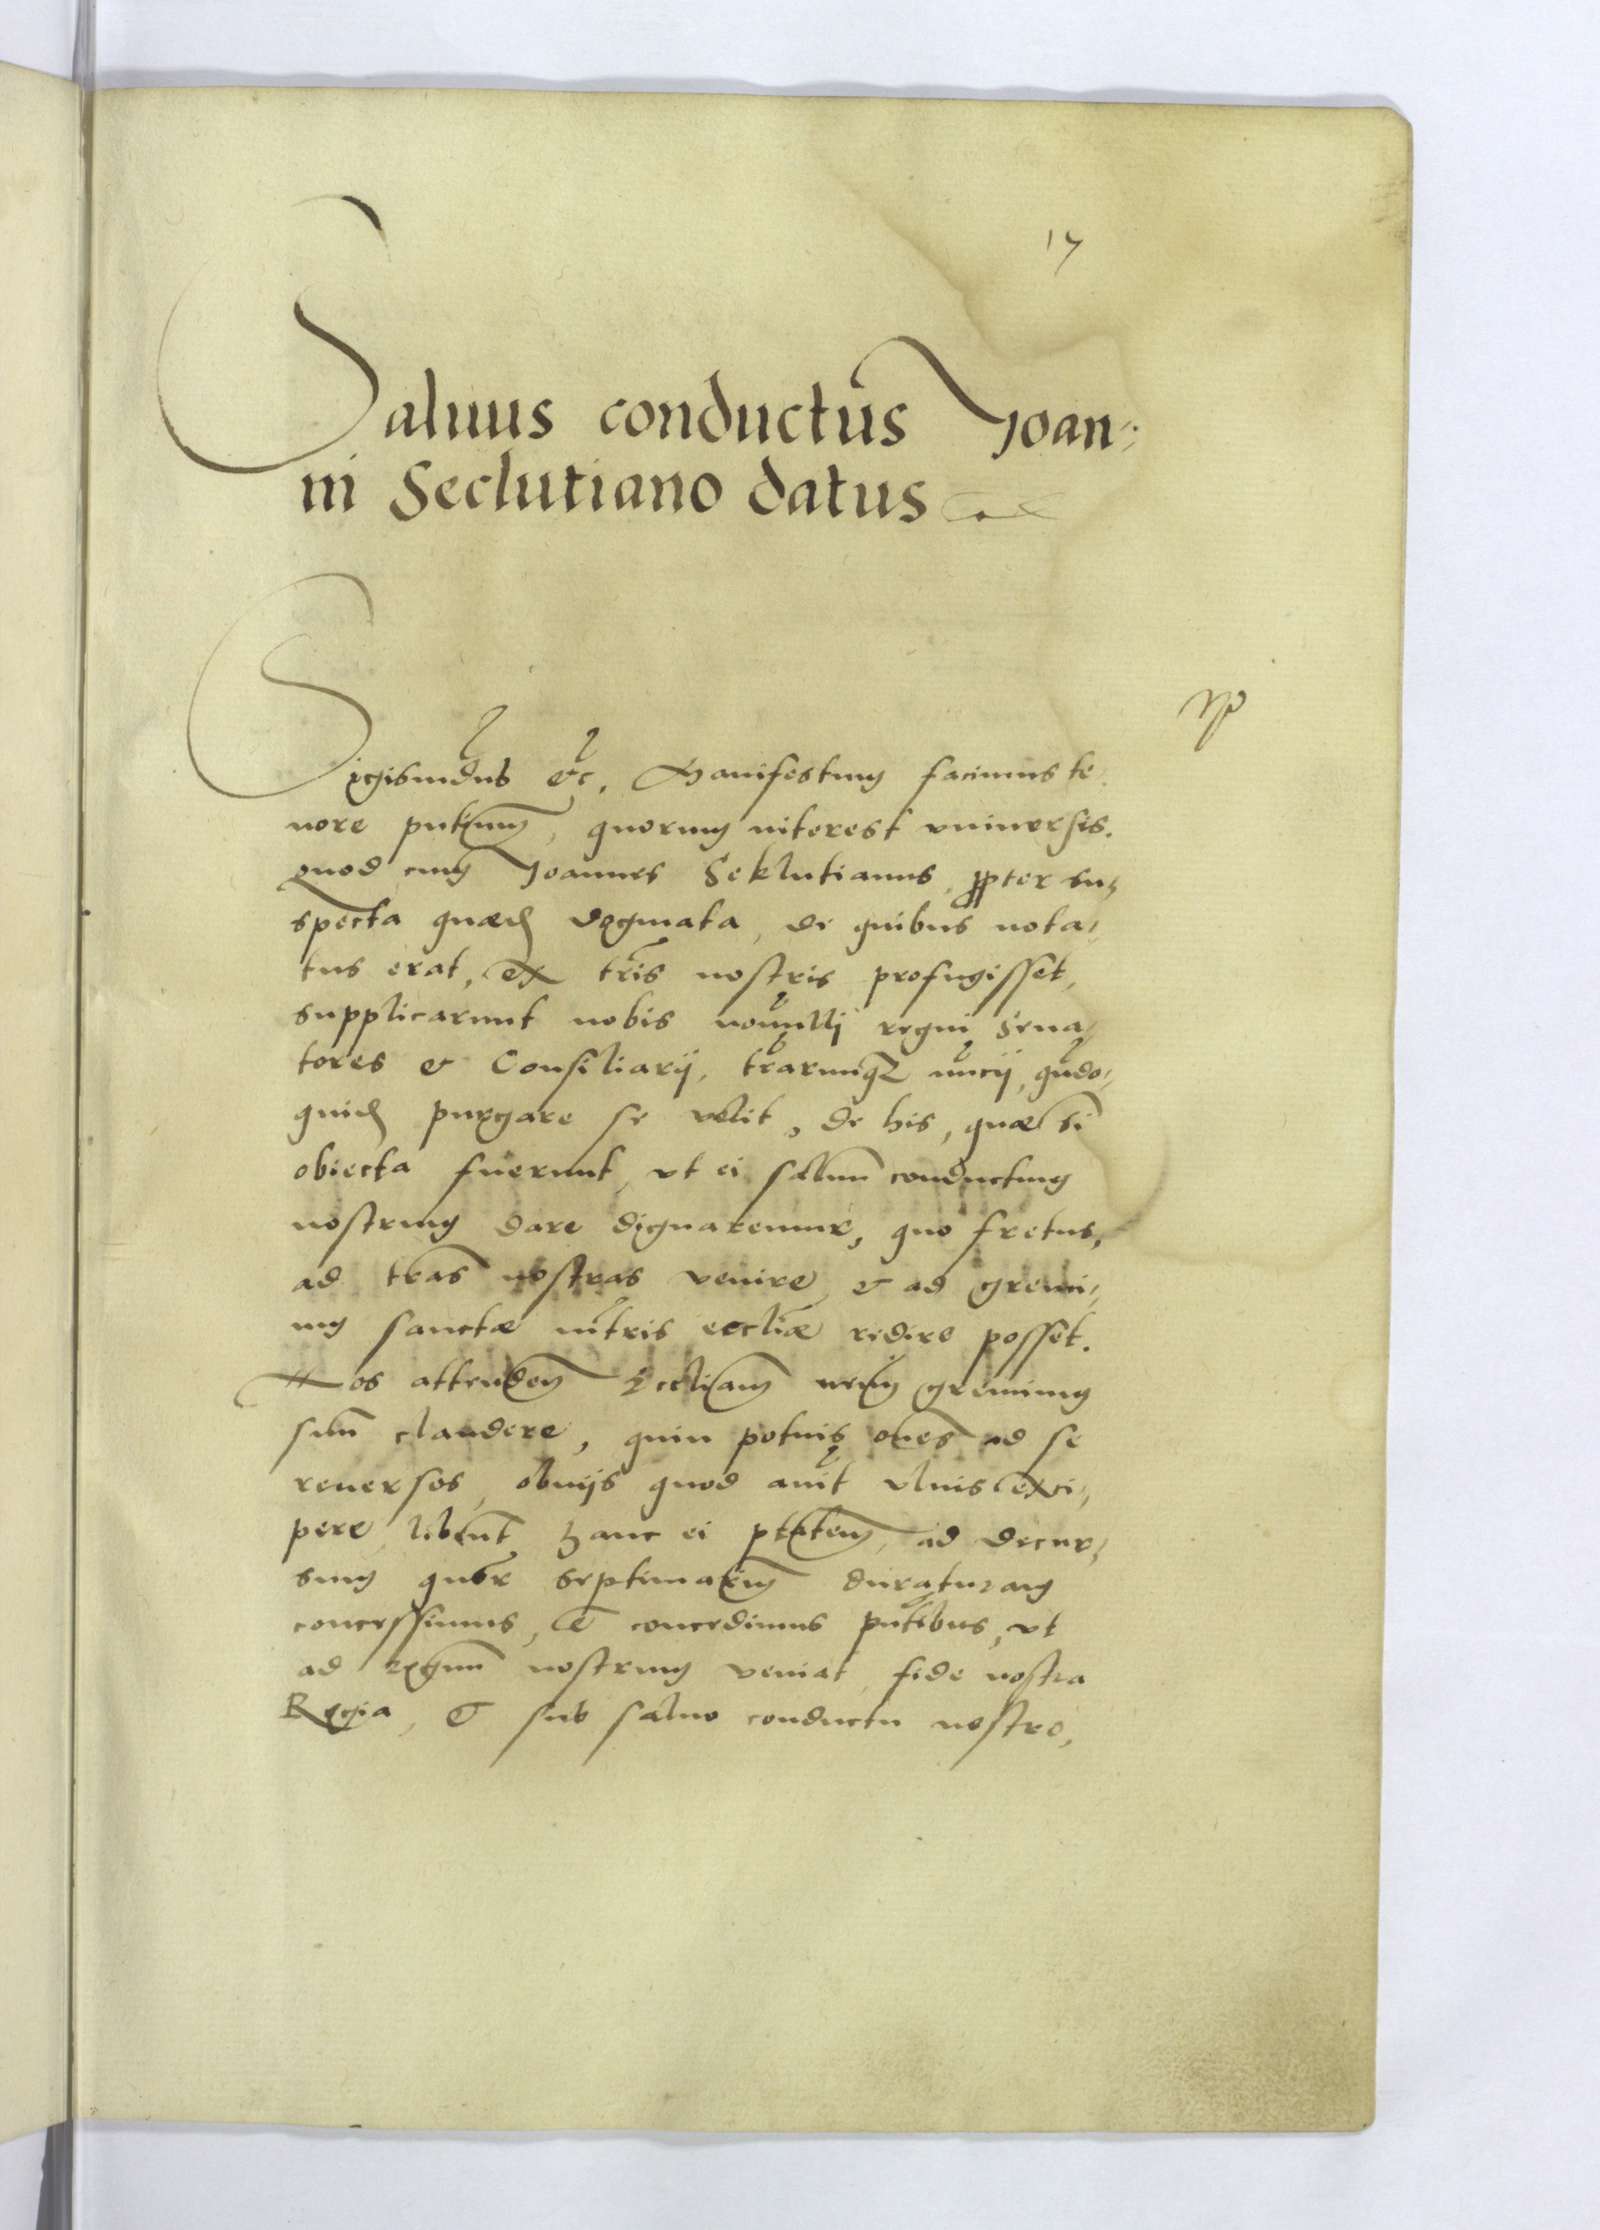 17
Saluus conductus Joan-
ni Seclutiano datus
Sigismūdus etc. Manifestum facimus te-
nore pntium, quorum interest vniuersis.
quod cum Joannes Seklutianus, propter su-
specta quæd dogmata, de quibus nota-
tus erat, ex tris nostris profugisset,
supplicarunt nobis nonnulli regni Sena-
tores et Consiliarij, trarumq nuncij, qudo-
quid purgare se velit, de his, quæ si
obiecta fuerunt, vt ei saluum conductum
nostrum dare dignaremur, quo fretus,
ad tras nostras venire, et ad gremi-
um sanctæ mtris eccliæ redire posset.
Nos attenden Eccliam gremium
suum claudere, quin potius oues ad se
reuersos, obuijs quod aiunt vlnis exci-
pere, hanc ei ptatem, ad decur-
sum septimarum duraturam
concessimus, et concedimus pntibus, vt
ad regnum nostrum veniat, fide nostra
Regia, et sub saluo conductu nostro,